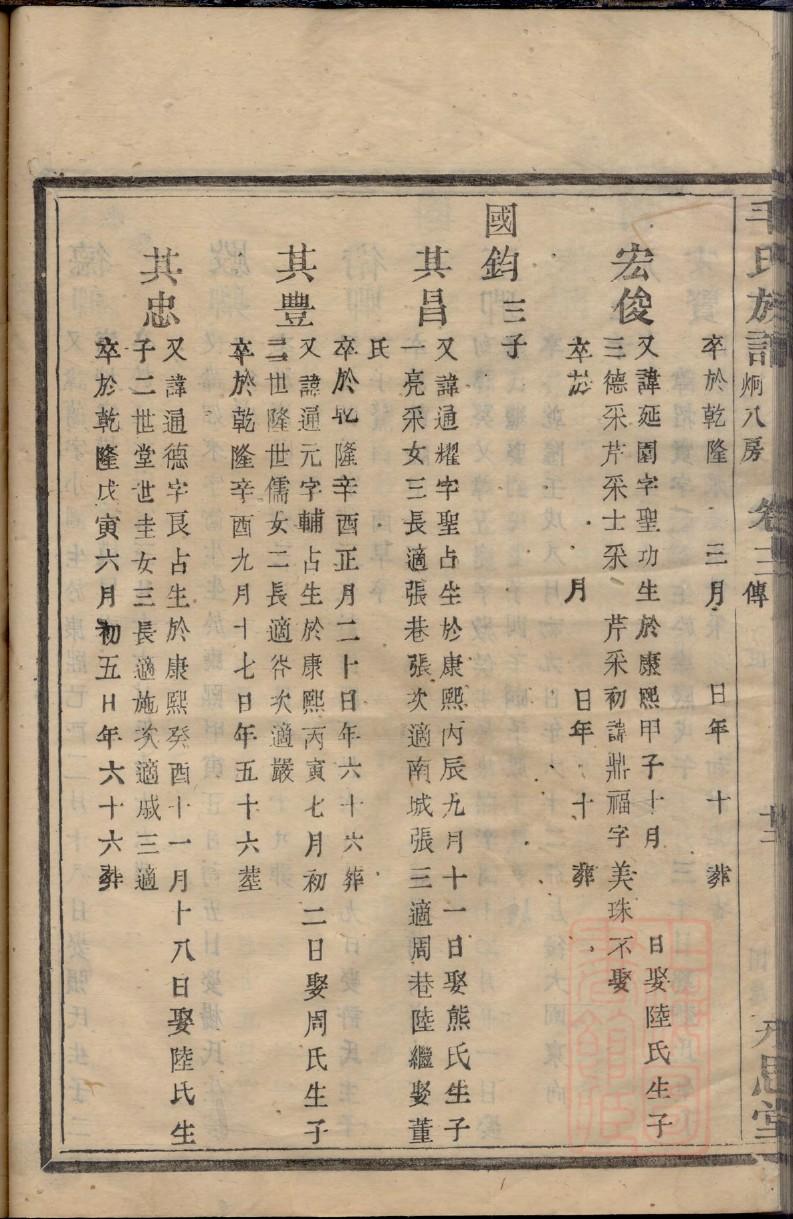 氏族譜 烱八房 卷三 傳 廿三 思堂
卒於乾隆 三月 日年 十 葬
宏俊
又諱延圍字聖功生於康熙甲子十月 日娶陸氏生子
三德采芹采士采 芹采初諱鼎福字美珠不娶
卒於 月 日年 十 葬
國鈞 三子
其昌
又諱通耀字聖占生於康熙丙辰九月十一日娶熊氏生子
一亮采女三長適張巷張次適南城張三適周巷陸繼娶董
氏
卒於乾隆辛酉正月二十日年六十六葬
其豐
又諱通元字輔占生於康熙丙寅七月初二日娶周氏生子
二世隆世儒女二長適 次適嚴
卒於乾隆辛酉九月十七日年五十六葬
其忠
又諱通德字良占生於康熙癸酉十一月十八日娶陸氏生
子二世堂世圭女三長適施次適戚三適
卒於乾隆戊寅六月初五日年六十六葬